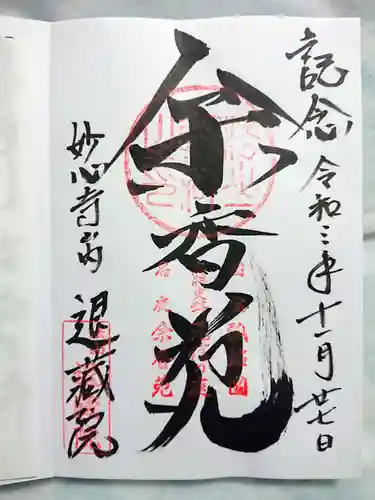 記念 令和三年十一月廿七日
余香苑
妙心寺内 退藏院